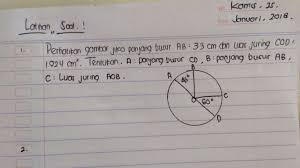 Kamis, 25.
Januari, 2018.
Latihan Soal.!
1. Perhatikan gambar jika panjang busur AB : 33 cm dan luas juring COD :
1.924 cm². Tentukan. A : panjang busur CD, B : panjang busur AB,
C : Luas juring AOB.
B
A
O
C
60°
D
2.